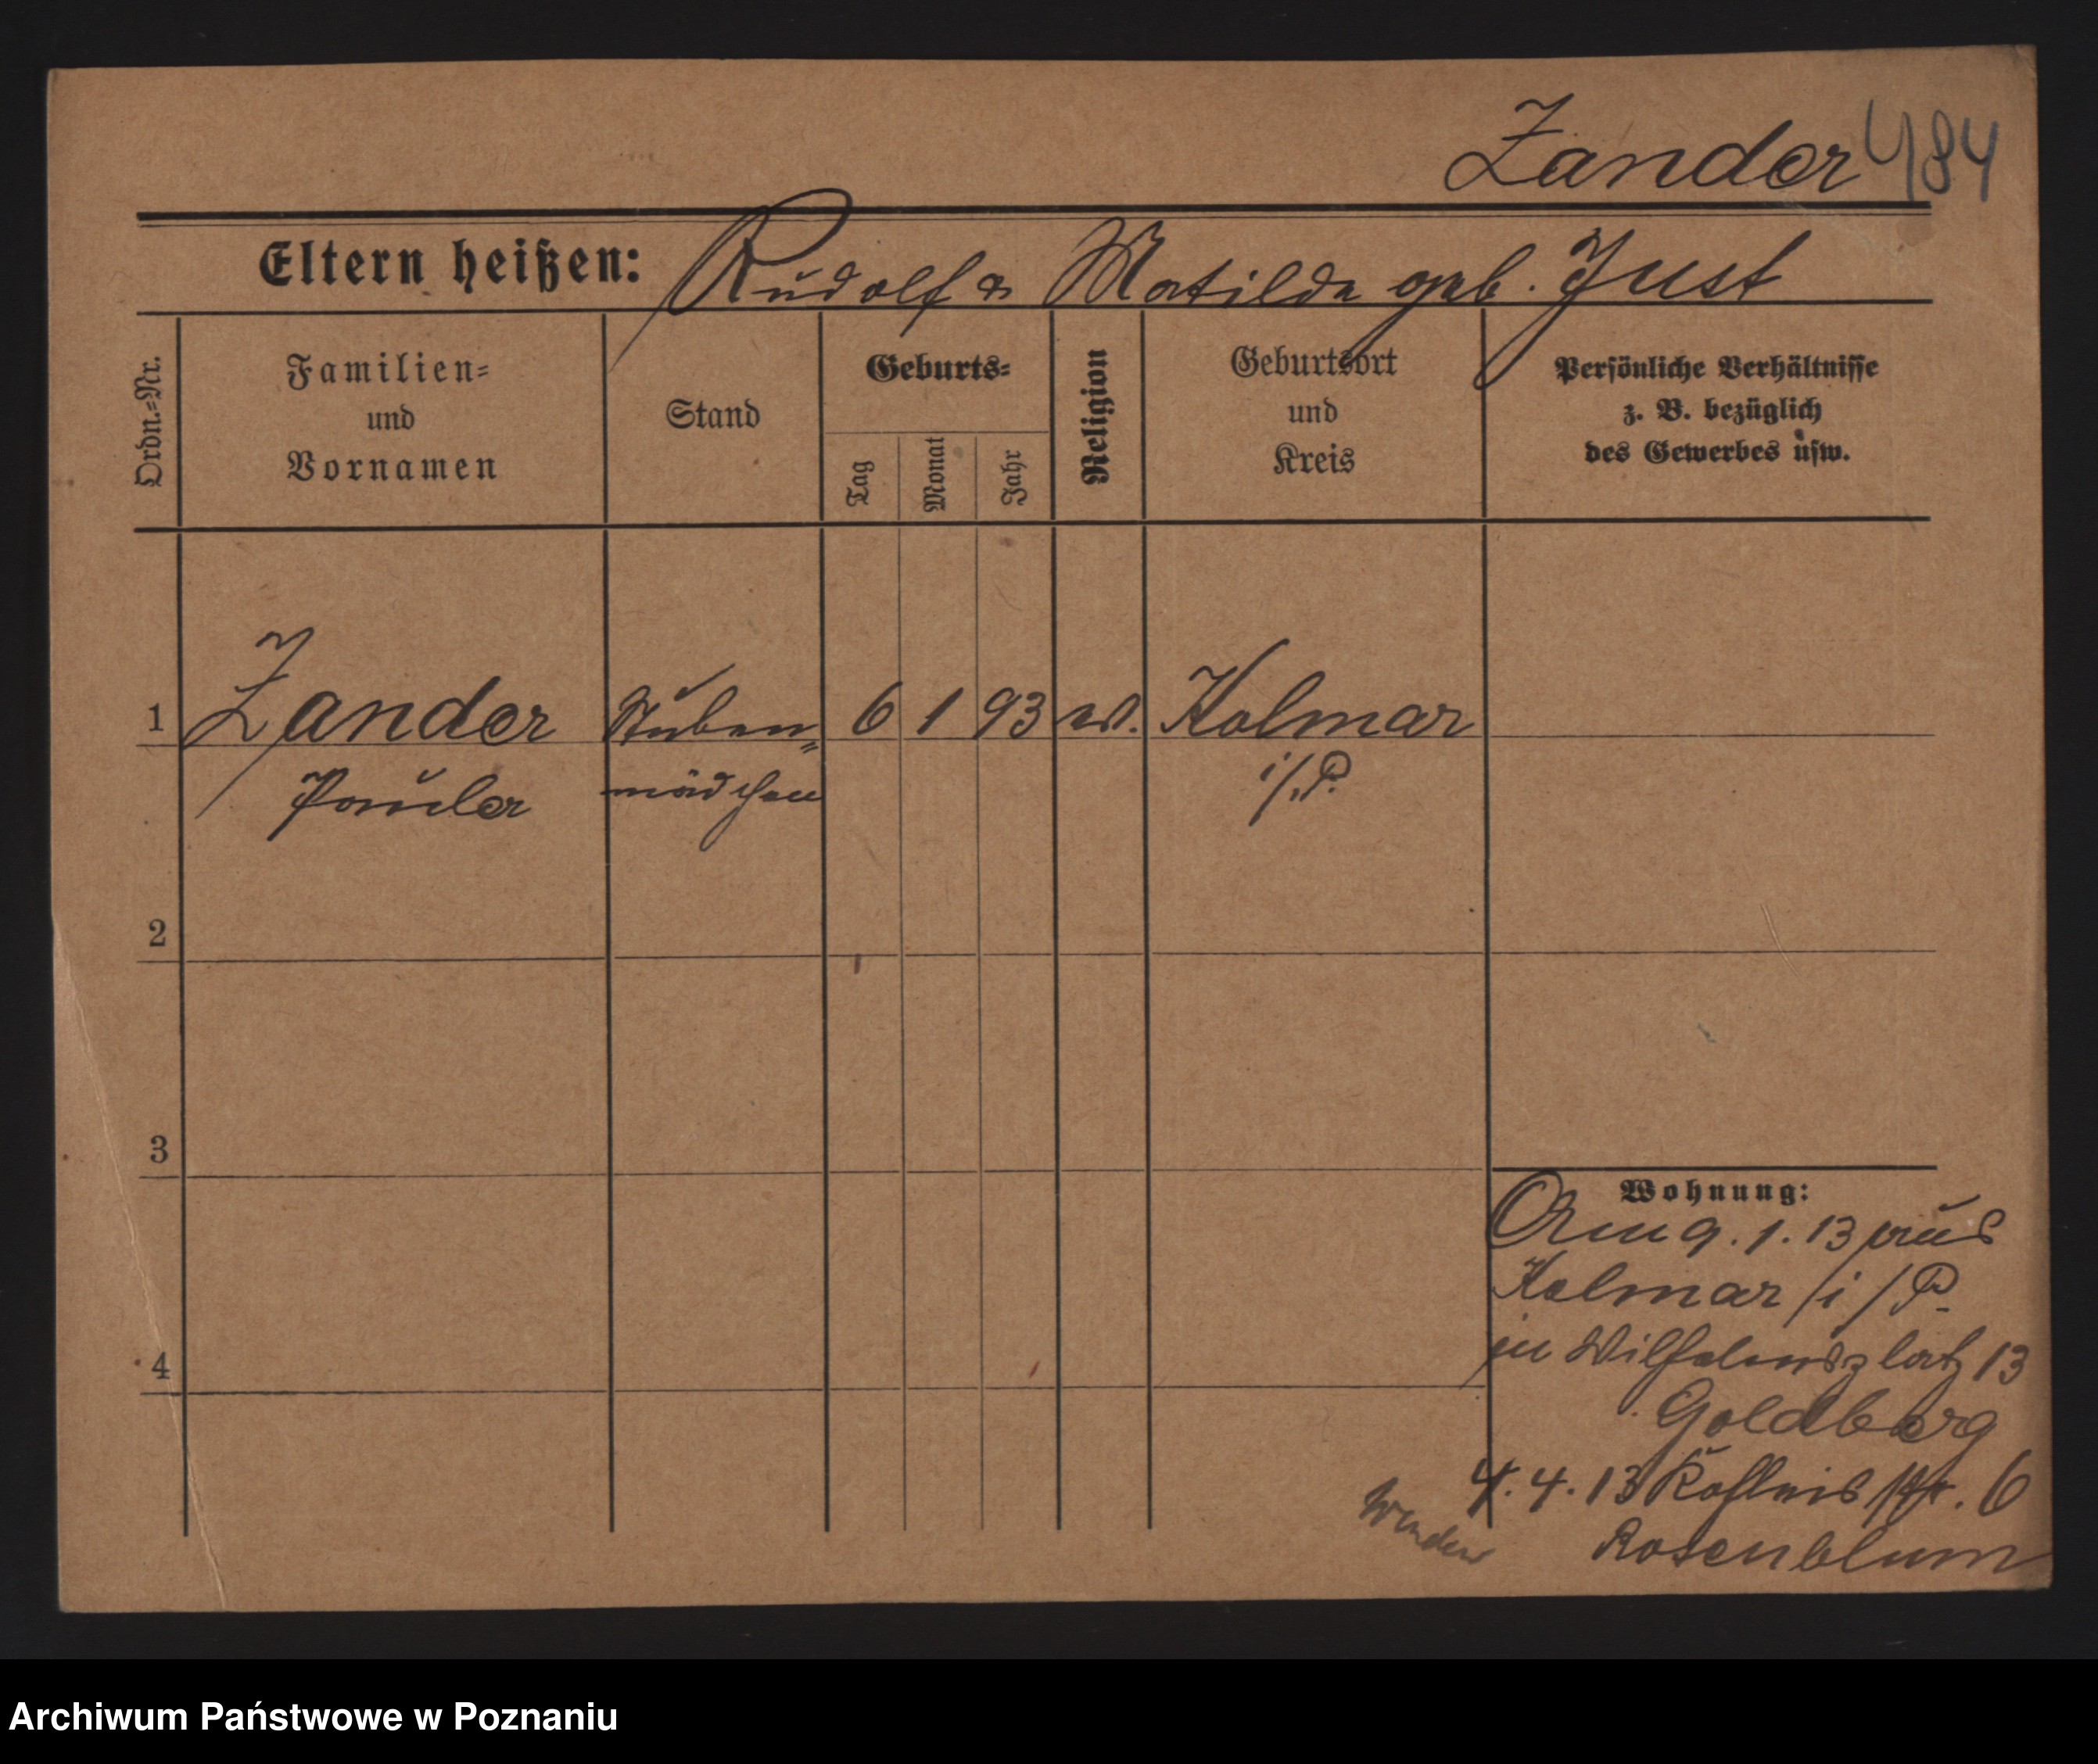 Zander 484
Eltern heißen: Rudolf & Matilde geb. Just
Ordn.-Nr.
Familien-
und
Vornamen
Stand
Geburts-
Tag
Monat
Jahr
Religion
Geburtsort
und
Kreis
Persönliche Verhältnisse
z. B. bezüglich
des Gewerbes usw.
1 Zander Stuben- 6 1 93 ev. Kolmar
Paula mädchen i/P.
2
3
4
Wohnung:
Am 9. 1. 13 aus
Kolmar i/P.
in Wilhelmsplatz 13
Goldberg
4. 4. 13 Str. 6
Rosenblum
Wenden
Archiwum Państwowe w Poznaniu